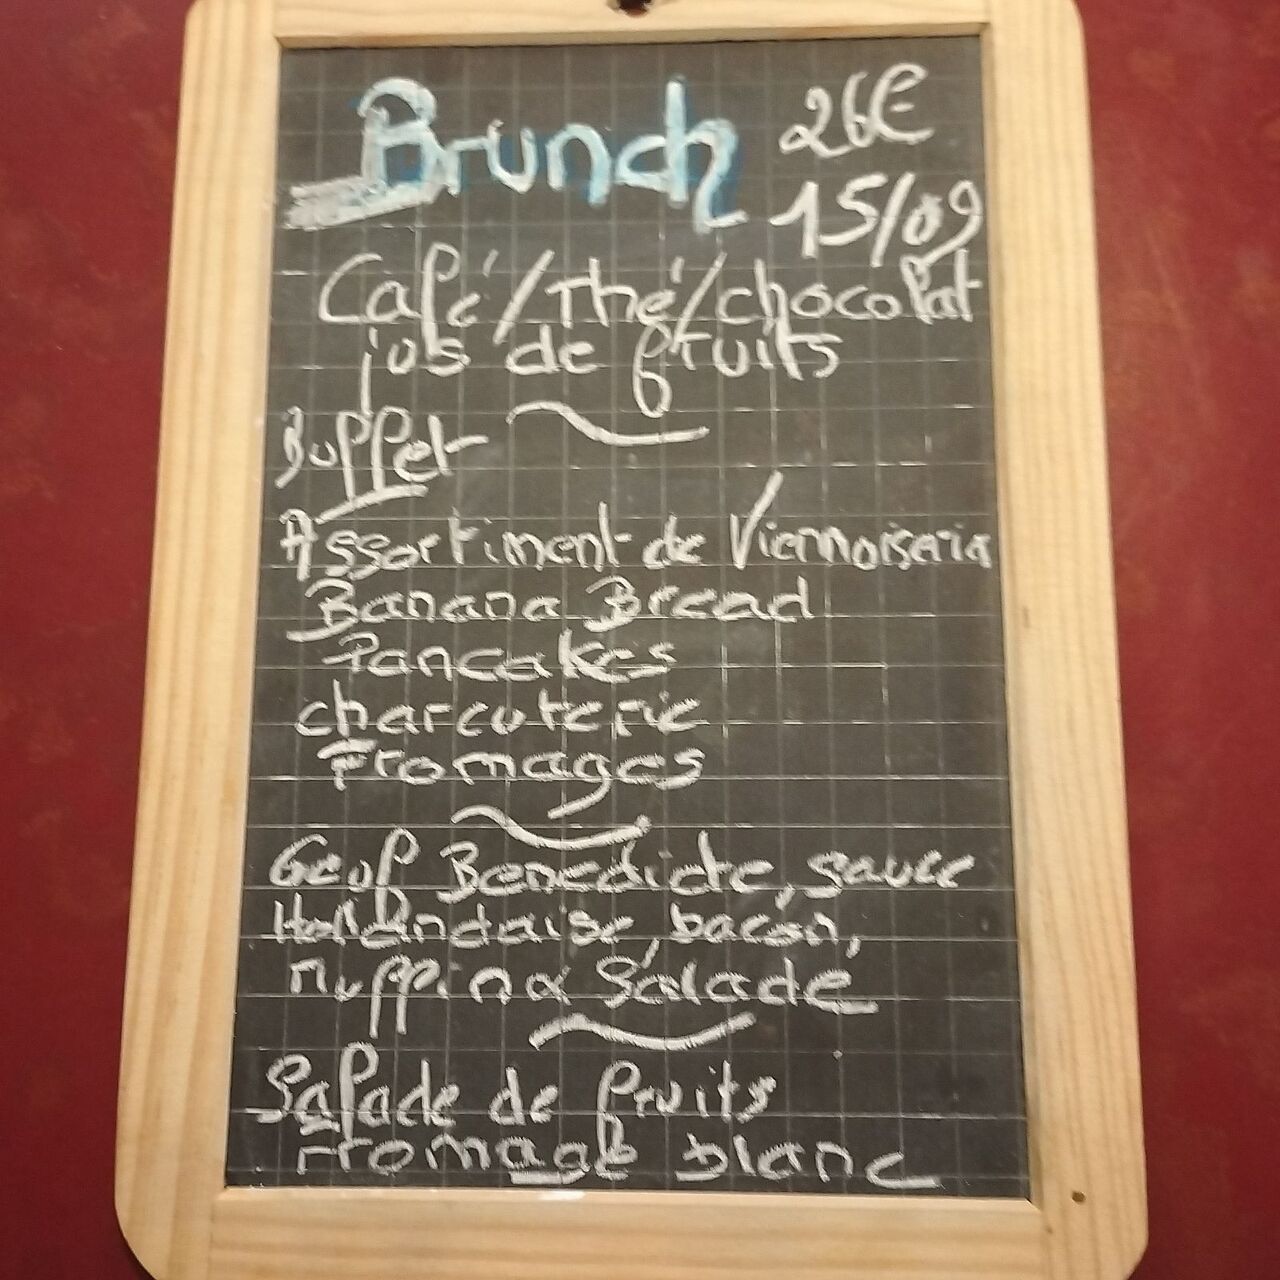 Brunch 26€
15/09
Café/Thé/chocolat
jus de fruits
Buffet
Assortiment de Viennoiserie
Banana Bread
Pancakes
charcuterie
Fromages
Oeuf Benedicte, sauce
Hollandaise, bacon,
Muffin & Salade
Salade de fruits
Fromage blanc